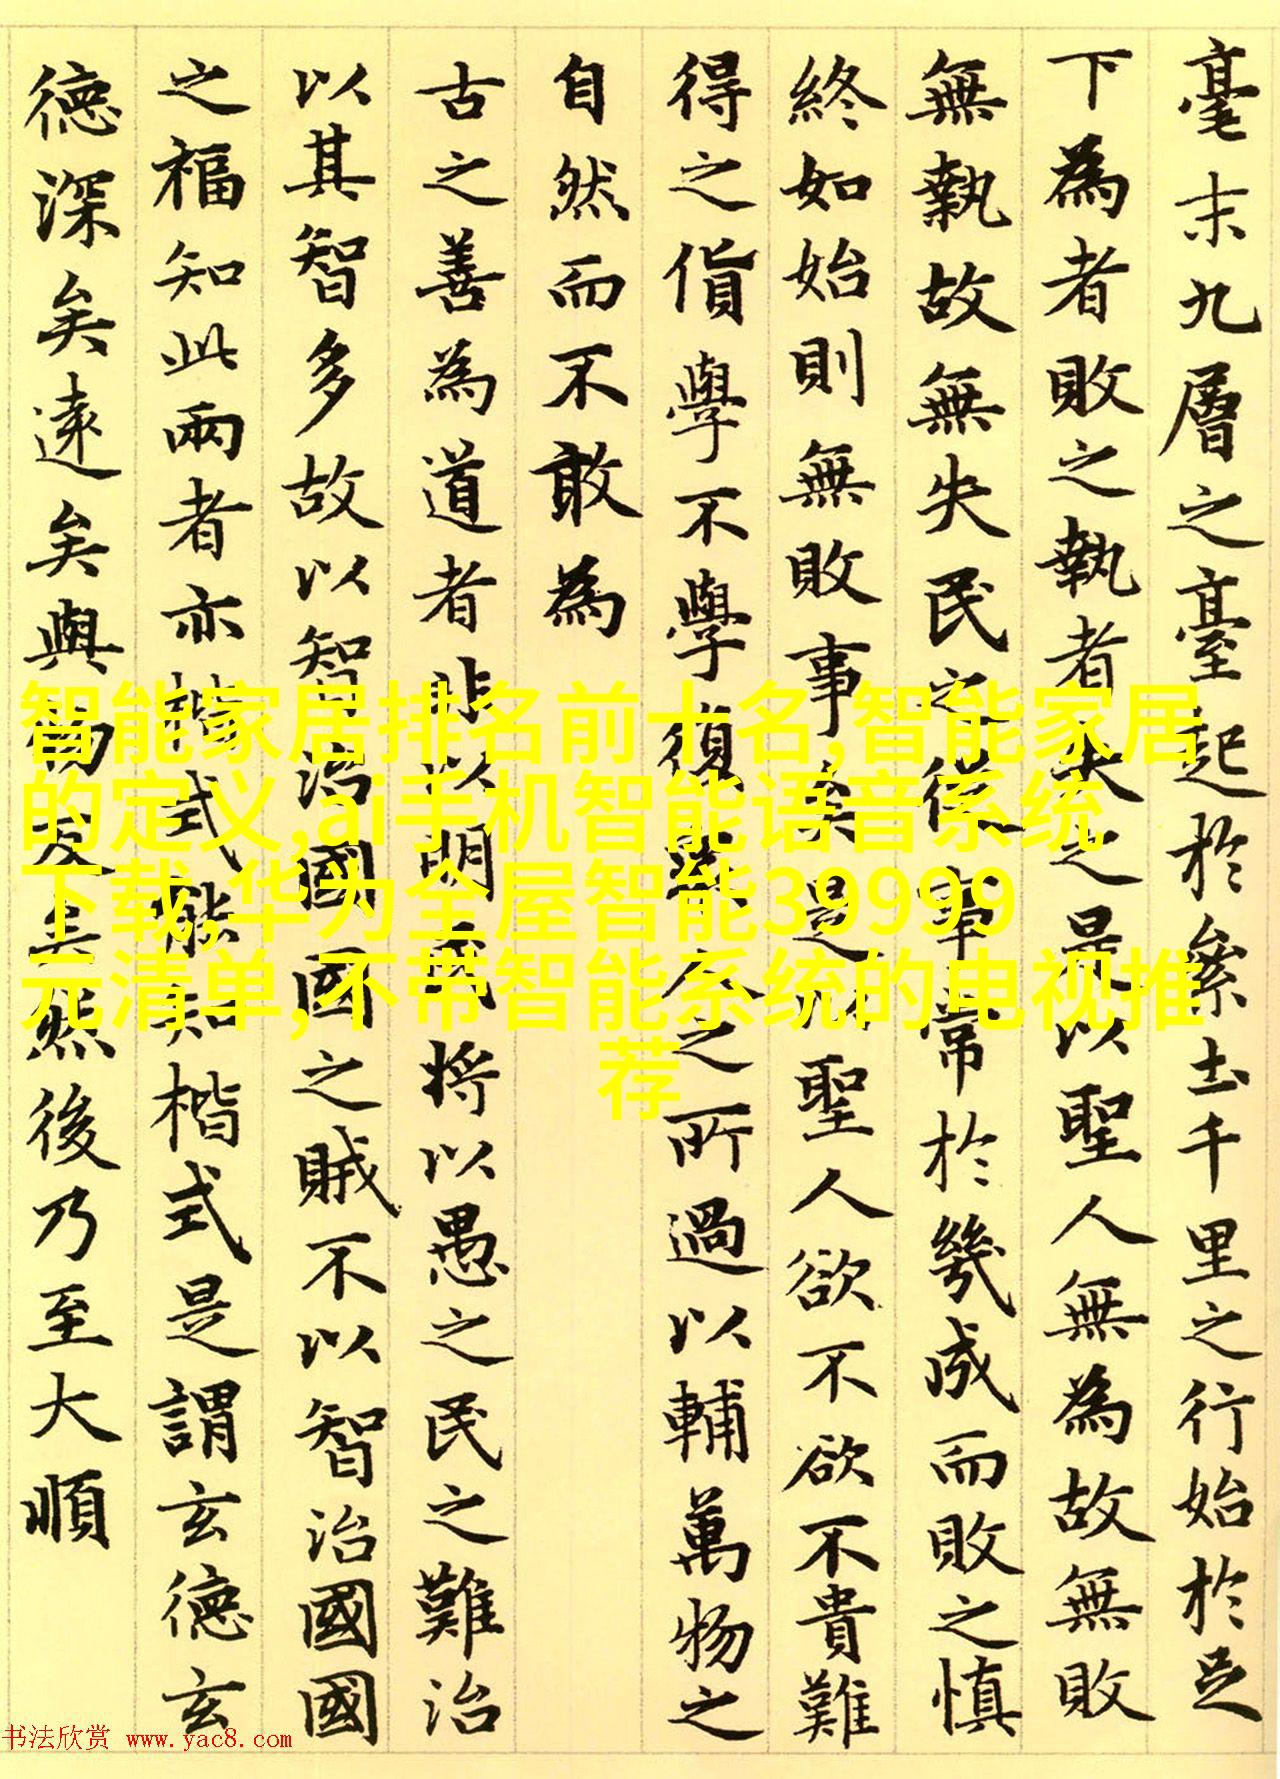 毫末九層之臺起於絫土千里之行始於足
下為者敗之執者失之是以聖人無為故無敗
無執故無失民之從事常於幾成而敗之慎
終如始則無敗事矣是以聖人欲不欲不貴難
得之貨學不學復眾人之所過以輔萬物之
自然而不敢為
古之善為道者非以明民將以愚之民之難治
以其智多故以智治國國之賊不以智治國國
之福知此兩者亦楷式能知楷式是謂玄德玄
德深矣遠矣與物反矣然後乃至大順
智能家居排名前十名,智能家居
的定义,ai手机智能语音系统
下载,华为全屋智能39999
元清单,不带智能系统的电视推
荐
书法欣赏 www.yac8.com